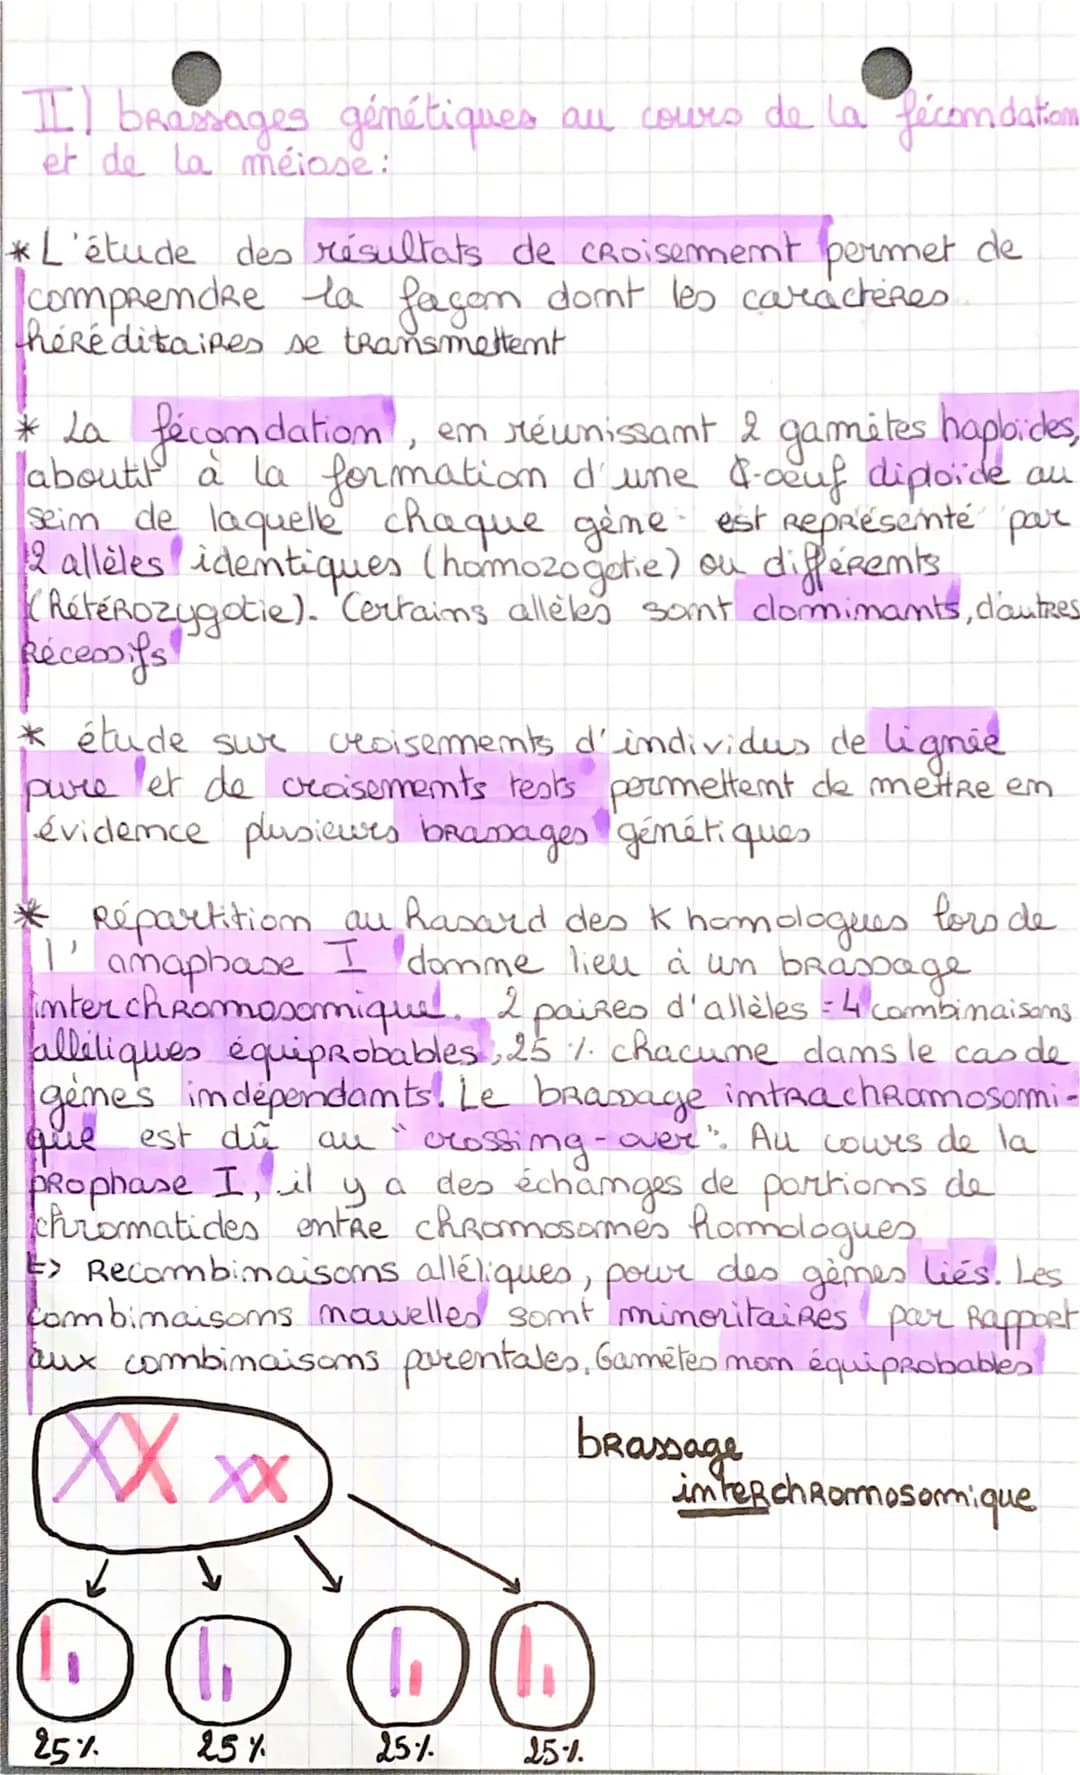 II) brassages génétiques au cours de la fécondation
et de la méiose:
* L'étude des résultats de croisement permet de
comprendre la façon dont les caractères
héréditaires se transmettent
* La fécondation, en réunissant 2 gamètes haploïdes,
aboutit à la formation d'une ¢-oeuf diploïde au
sein de laquelle chaque gène est représenté par
2 allèles identiques (homozogotie) ou différents
(hétérozygotie). Certains allèles sont dominants, d'autres
récessifs
* étude sur croisements d'individus de lignée
pure et de croisements tests permettent de mettre en
évidence plusieurs brassages génétiques
* Répartition au hasard des K homologues lors de
l' anaphase I donne lieu à un brassage
interchromosomique. 2 paires d'allèles = 4 combinaisons
alléliques équiprobables, 25 % chacune dans le cas de
gènes indépendants. Le brassage intrachromosomi-
que est dû au "crossing-over". Au cours de la
prophase I, il y a des échanges de portions de
chromatides entre chromosomes homologues
↳> Recombinaisons alléliques, pour des gènes liés. Les
combinaisons nouvelles sont minoritaires par rapport
aux combinaisons parentales. Gamètes non équiprobables
brassage
interchromosomique
25% 25% 25% 25%